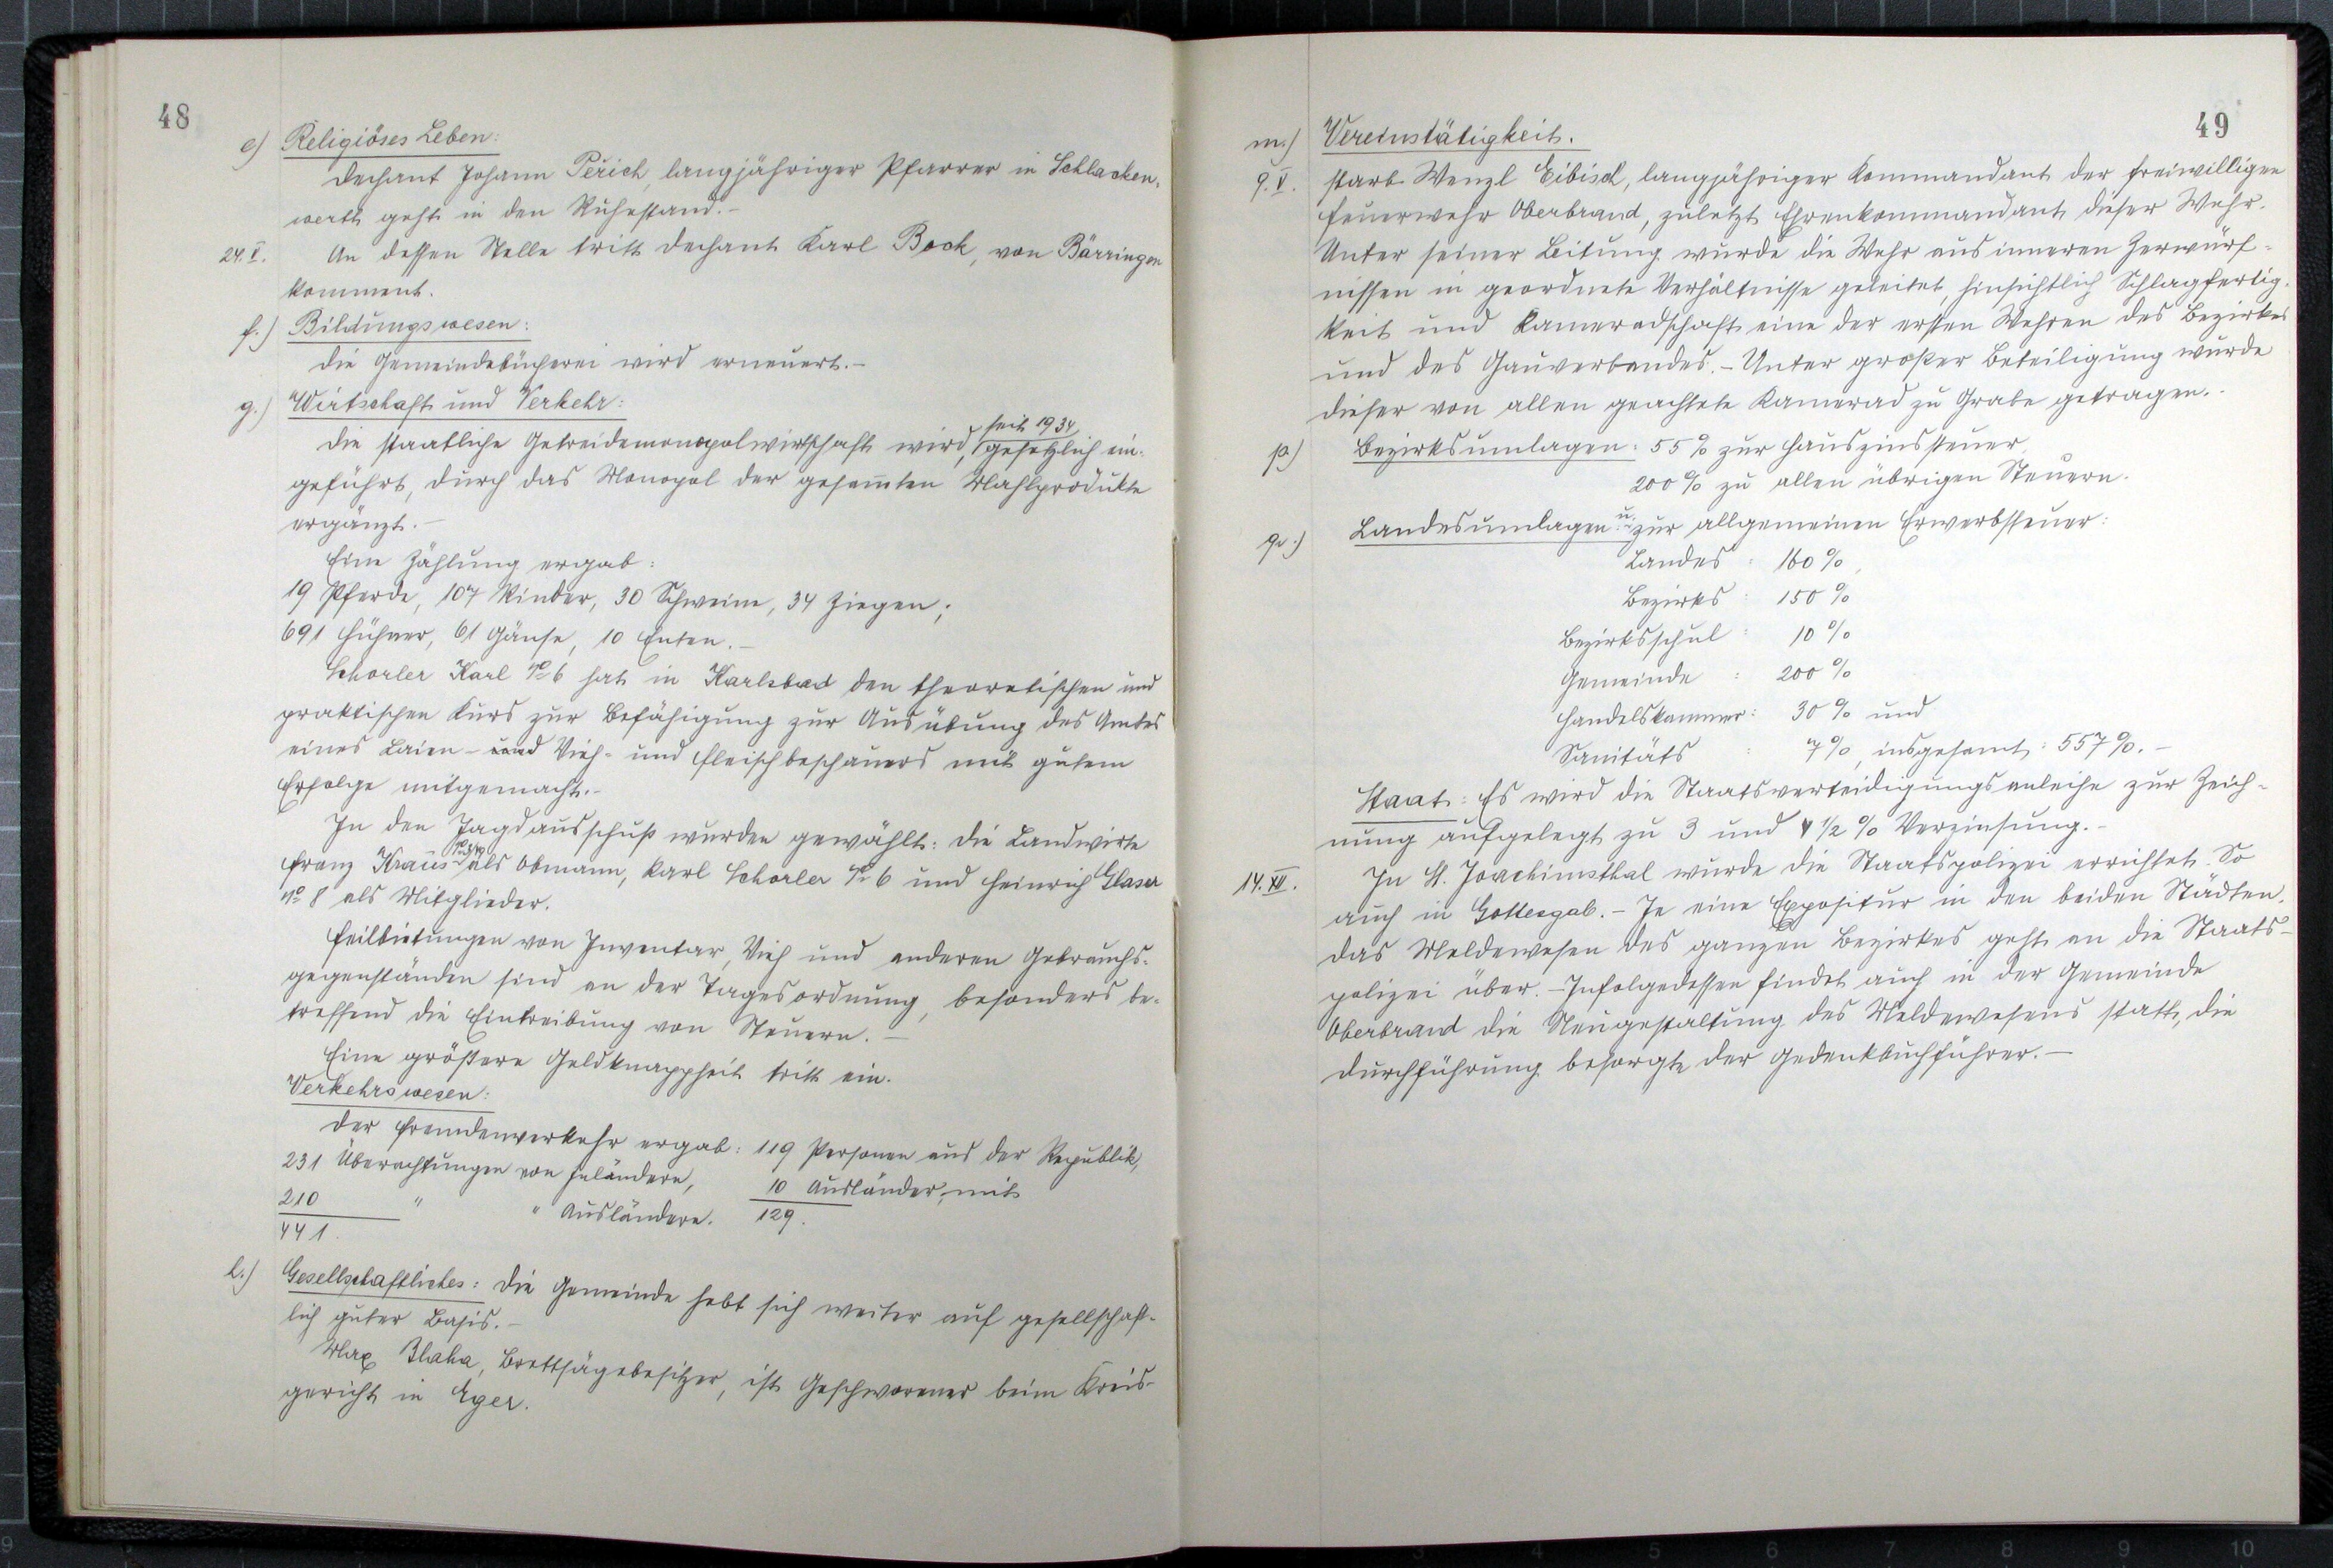 48
e) Religiöses Leben:
Dechant Johann Peřich, langjähriger Pfarrer in Schlacken-
werth geht in den Ruhestand.-
24.V. An dessen Stelle tritt Dechant Karl Bock, von Bärringen
komment.
f.) Bildungswesen:
Die Gemeindebücherei wird erneuert.-
g.) Wirtschaft und Verkehr:
seit 1934
Die staatliche Getreidemonopolwirtschaft wird, gesetzlich ein-
geführt, durch das Monopol der gesamten Mahlprodukte
ergänzt.-
Eine Zählung ergab:
19 Pferde, 107 Rinder, 30 Schweine, 34 Ziegen;
691 Hühner, 61 Gänse, 10 Enten.-
Schorler Karl No 6 hat in Karlsbad den theoretischen und
praktischen Kurs zur Befähigung zur Ausübung des Amtes
eines Laien- und Vieh- und Fleischbeschauers mit gutem
Erfolge mitgemacht.-
In den Jagdausschuß wurden gewählt: Die Landwirte
Franz Kraus als Obmann, Karl Schorler No 6 und Heinrich Glaser
No 8 als Mitglieder.
Feilbietungen von Inventar, Vieh und anderen Gebrauchs-
gegenständen sind an der Tagesordnung, besonders be-
treffend die Eintreibung von Steuern.-
Eine größere Geldknappheit tritt ein.
Verkehrswesen:
Der Fremdenverkehr ergab: 119 Personen aus der Republik,
231 Übernachtungen von Inländern, 10 Ausländer, mit
210 " " Ausländern. 129.
441.
l.) Gesellschaftliches: Die Gemeinde hebt sich weiter auf gesellschaft-
lich guter Basis.-
Max Blaha, Brettsägebesitzer, ist Geschworener beim Kreis-
gericht in Eger.
49
m.) Vereinstätigkeit.
9.V. starb Wenzl Eibisch, langjähriger Kommandant der freiwilligen
Feuerwehr Oberbrand, zuletzt Ehrenkommandant dieser Wehr.
Unter seiner Leitung wurde die Wehr aus inneren Zerwürf-
nissen in geordnete Verhältnisse geleitet, hinsichtlich Schlagfertig-
keit und Kameradschaft eine der ersten Wehren des Bezirkes
und des Gauverbandes.- Unter großer Beteiligung wurde
dieser von allen geachtete Kamerad zu Grabe getragen.-
p.) Bezirksumlagen: 55% zur Hauszinssteuer
200% zu allen übrigen Steuern.
q.) Landesumlagen u. zur allgemeinen Erwerbsteuer:
Landes : 160%,
Bezirks : 150%
Bezirksschul : 10%
Gemeinde : 200%
Handelskammer: 30% und
Sanitäts : 7%, insgesamt: 557%.-
Staat: Es wird die Staatsverteidigungsanleihe zur Zeich-
nung aufgelegt zu 3 und 4 1/2% Verzinsung.-
14.XII. In St. Joachimsthal wurde die Staatspolizei errichtet. So
auch in Gottesgab.- Je eine Expositur in den beiden Städten.
Das Meldewesen des ganzen Bezirkes geht an die Staats-
polizei über.- Infolgedessen findet auch in der Gemeinde
Oberbrand die Neugestaltung des Meldewesens statt, die
Durchführung besorgte der Gedenkbuchführer.-